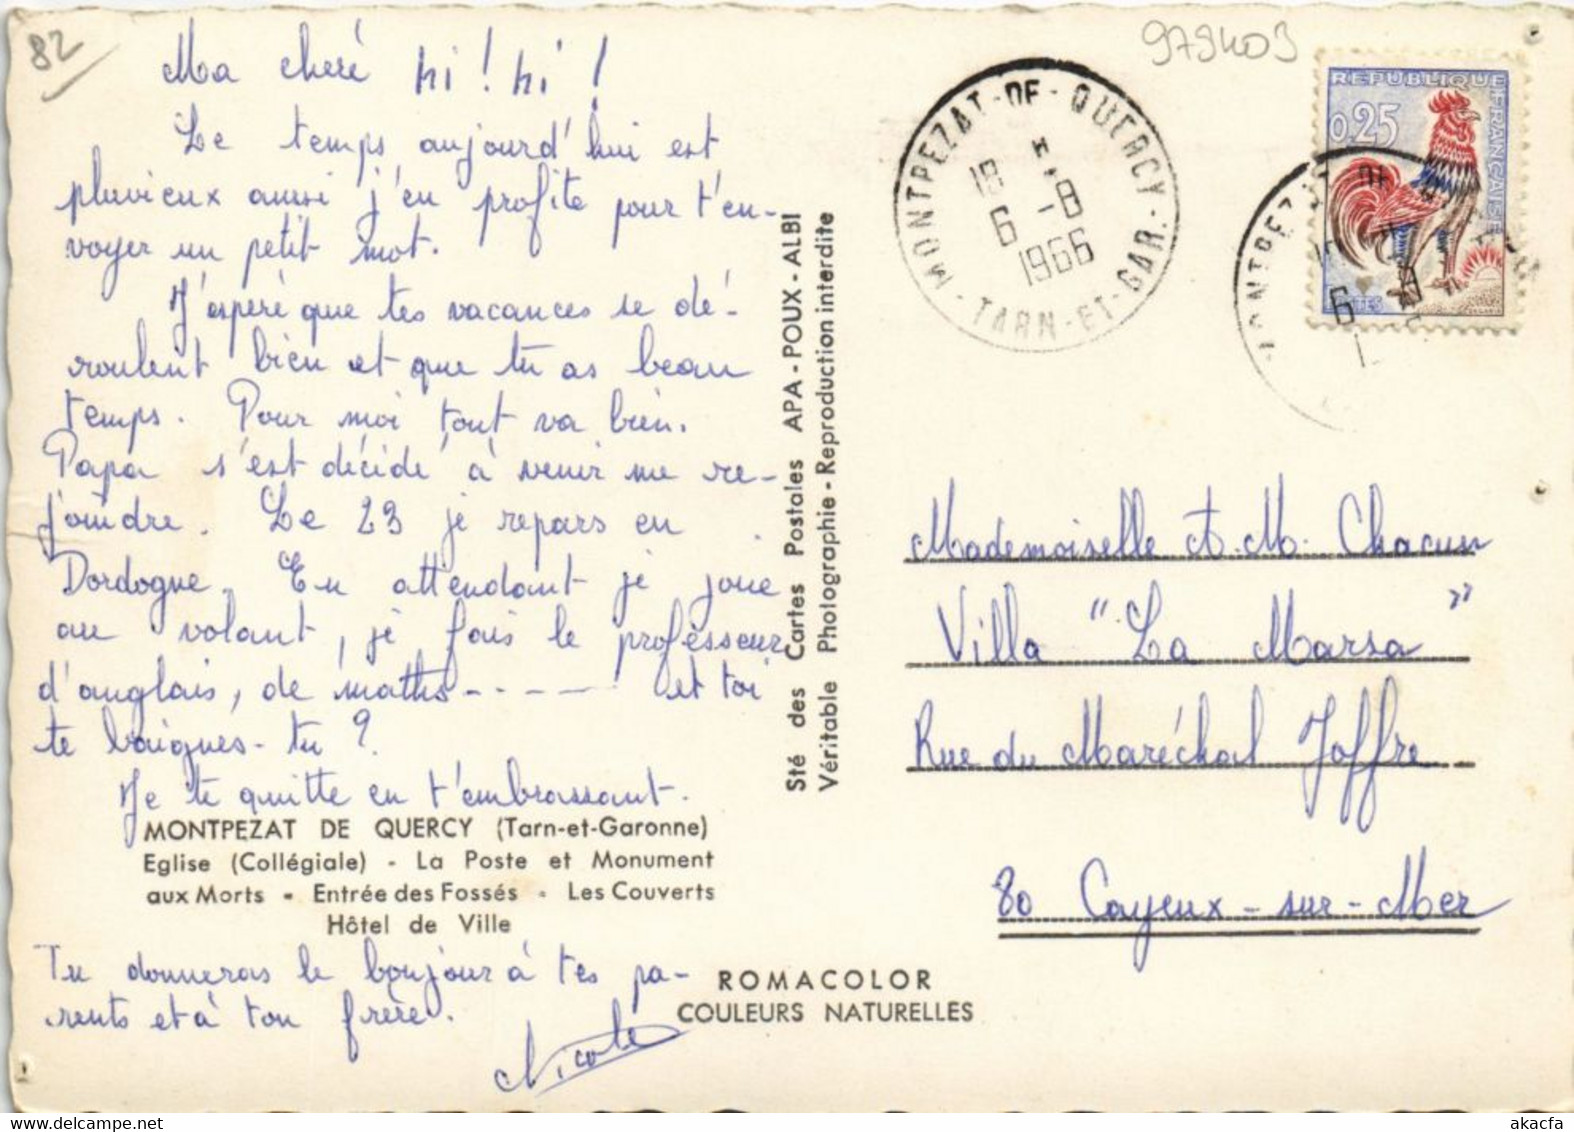 82
979403
Ma cheré hi ! hi !
Le temps aujourd'hui est
pluvieux aussi j'en profite pour t'en-
voyer un petit mot.
J'esperé que tes vacances se dé-
roulent bien et que tu as beau
temps. Pour moi tout va bien.
Papa s'est décidé à venir me re-
joindre. Le 23 je repars en
Dordogne. En attendant je joue
au volant, je fais le professeur
d'anglais, de maths - - - - - et toi
te baignes-tu ?
Je te quitte en t'embrassant.
MONTPEZAT DE QUERCY (Tarn-et-Garonne)
Eglise (Collégiale) - La Poste et Monument
aux Morts - Entrée des Fossés - Les Couverts
Hôtel de Ville
Tu donneras le bonjour à tes pa-
rents et à ton frère.
Nicole
Sté des Cartes Postales APA-POUX - ALBI
Véritable Photographie - Reproduction interdite
ROMACOLOR
COULEURS NATURELLES
MONTPEZAT-DE-QUERCY
18 H.
6 -8
1966
TARN-ET-GAR.
REPUBLIQUE FRANÇAISE
0,25
POSTES
6
Mademoiselle A. M. Chacun
Villa "La Marsa"
Rue du Maréchal Joffre
80 Cayeux-sur-Mer
www.delcampe.net
akacfa